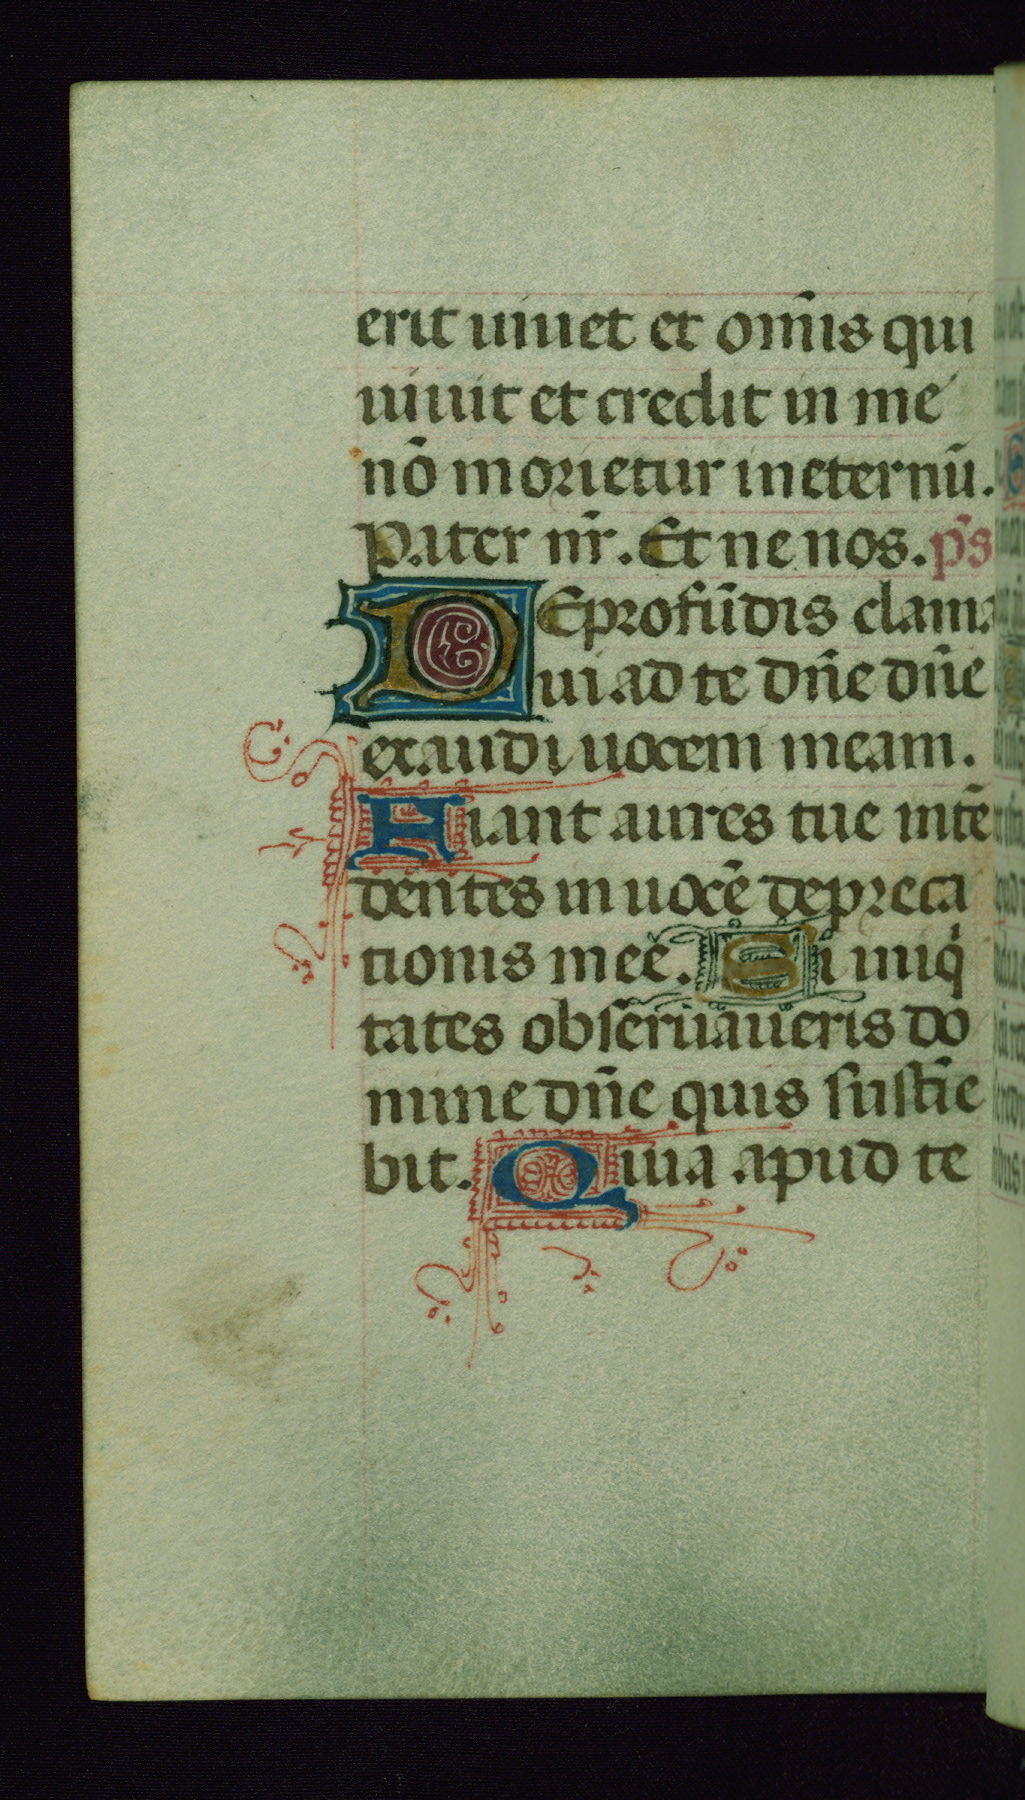 erit uiuet et om̄is qui
uiuit et credit in me
nō morietur in eternū.
Pater nr̄. Et ne nos. p̄s
DE profūdis clama
ui ad te dn̄e dn̄e
exaudi uocem meam.
Fiant aures tue intē
dentes in uocē depreca
tionis meē. Si iniq̇
tates obseruaueris do
mine dn̄e quis sustīe
bit. Quia apud te